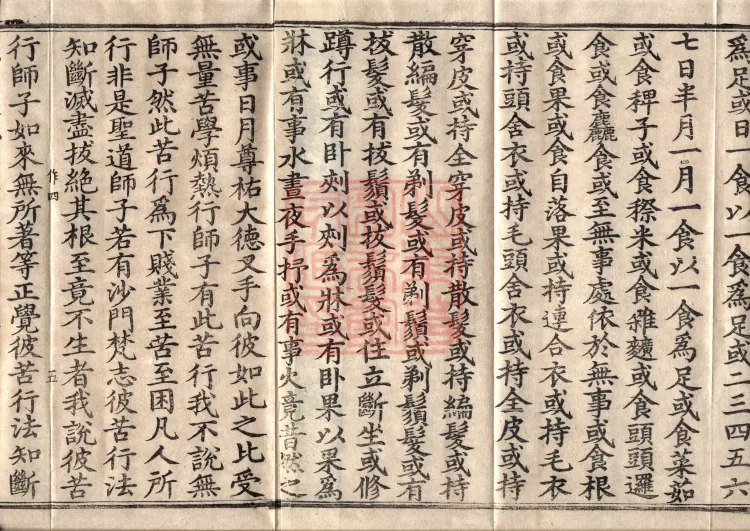 為足或日一食以一食為足或二三四五六
七日半月一月一食以一食為足或食菜茹
或食稗子或食穄米或食雜𪍿或食頭頭邏
食或食麤食或至無事處依於無事或食根
或食果或食自落果或持連合衣或持毛衣
或持頭舍衣或持毛頭舍衣或持全皮或持
穿皮或持全穿皮或持散髮或持編髮或持
散編髮或有剃髮或有剃鬚或剃鬚髮或有
拔髮或有拔鬚或拔鬚髮或住立斷坐或修
蹲行或有卧刾以刾為牀或有卧果以果為
牀或有事水晝夜手抒或有事火竟昔然之
或事日月尊祐大德叉手向彼如此之比受
無量苦學煩熱行師子有此苦行我不說無
師子然此苦行為下賤業至苦至困凡人所
行非是聖道師子若有沙門梵志彼苦行法
知斷滅盡拔絕其根至竟不生者我說彼苦
作四
五
行師子如來無所著等正覺彼苦行法知斷